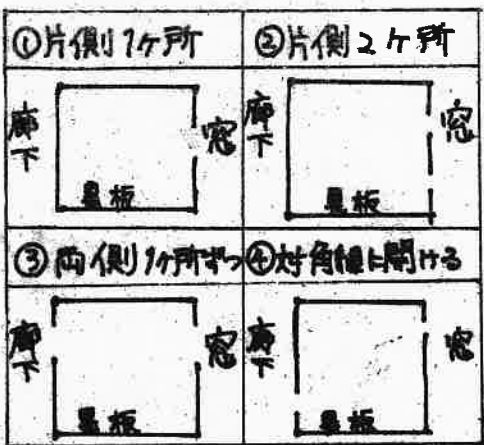 ①片側1ヶ所
②片側2ヶ所
廊下
窓
黒板
廊下
窓
黒板
③両側1ヶ所ずつ
④対角線に開ける
廊下
窓
黒板
廊下
窓
黒板